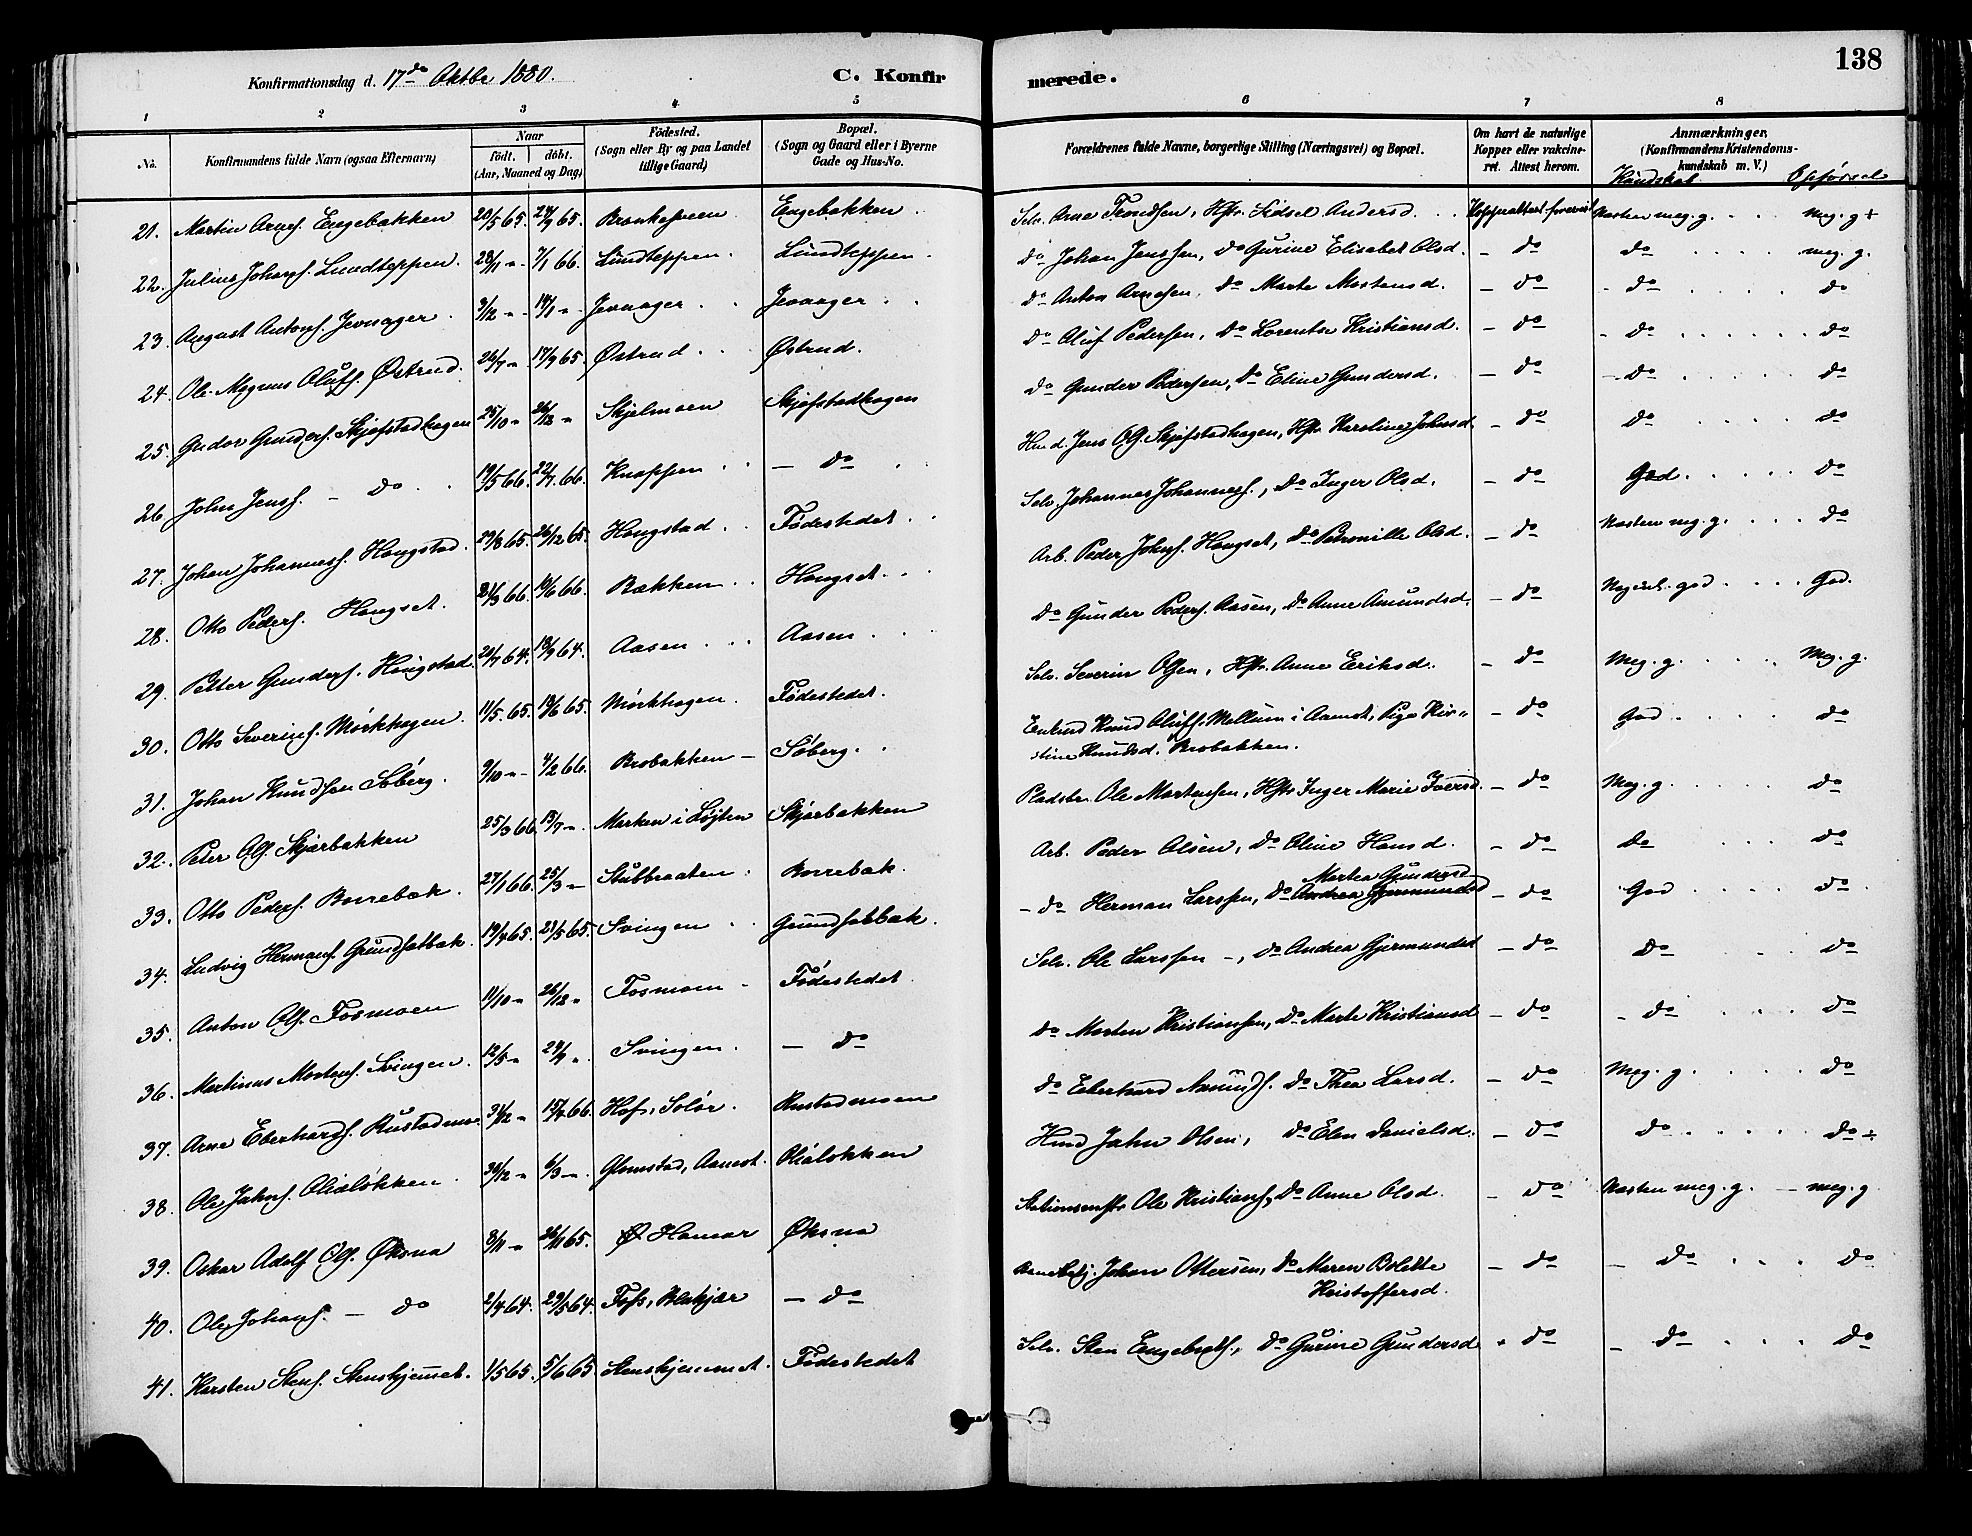 138
Konfirmationsdag d. 17de Oktbr 1880.
C. Konfirmerede.
1 2 3 4 5 6 7 8
No. Konfirmandens fulde Navn (ogsaa Efternavn). Naar født. døbt. (Aar, Maaned og Dag) Fødested. (Sogn eller By og paa Landet tillige Gaard) Bopæl. (Sogn og Gaard eller i Byerne Gade og Hus-No. Forældrenes fulde Navne, borgerlige Stilling (Næringsvei) og Bopæl. Om havt de naturlige Kopper eller vakcineret. Attest herom. Anmærkninger. (Konfirmandens Kristendomskundskab m. V.)
Kundskab Opførsel
21. Martin Arnes. Engebakken 20/5 65. 24/9 65. Engebakken Selv. Arne Trondsen, Hstr. Sidsel Andersd. Næsten meg. g. Meg. g +
22. Julius Johans. Lundteppen. 7/1 66. Lundteppen. Lundteppen. do Johan Jenssen, do Gurine Elisabet Olsd. - do do meg. g.
23. August Antons. Jevnager 9/12 " Jevnager Jevnager do Anton Arnesen, do Marte Mortensd. - do - do do
24. Ole Magnus Olufs. Østrud. 26/7 " 17/9 65. Østrud Østrud. do Oluf Pedersen, do Lorentse Kristiansd. - do - do do
25. Gudor Gunders. Skjefstadhagen 25/10 " 26/12 " Skjelmoen Skjefstadhagen do Gunder Pedersen, do Eline Gundersd. - do - do do
26. John Jens. - do 19/5 66. 22/7 66. Knappen - do Hmd. Jens O.G. Skjefstadhagen, Hstr Karoline Johnsd - do do do
27. Johan Johannes. Haugstad. 29/8 65. 26/12 65. Haugstad Fødestedet Selv. Johannes Johanness., do Inger Olsd. - do God do
28. Otto Peders. Haugset. 10/6 66. Bakken Haugset Arb. Peder Johns. Haugset, do Petronille Olsd. - do Næsten meg. g. do
29. Petter Gunders. Haugstad. 64. 18/9 64. Aasen Aasen do Gunder Peders. Aasen, do Anne Amundsd. - do Nogenl. god God.
30. Otto Severins. Mørkhagen. 11/5 65. 65. Mørkhagen Fødestedet. Selv. Severin Olsen, Hstr. Anne Eriksd. - do Meg. g. Meg. g.
31. Johan Knudsen Søberg. 9/10 " 4/2 66. Brobakken - Søberg. Enkmd Knud Olufs. Mellum i Aamot, Pige Kirstine Knudsd. Brobakken. - do God do
32. Peter Ols. Skjærbakken 25/3 66. 15/7 " Marken i Løjten Skjærbakken Pladsbr. Ole Martensen, Hstr Inger Marie Iversd. - do Meg. g. do
33. Otto Peders. Borrebæk. 27/1 66. 25/3 " Stubbraaten Borrebæk. Arb. Peder Olsen, do Oline Hansd. - do do do
34. Ludvig Hermans. Grundsetbæk. 19/4 65. 21/5 65. Svingen Grundsetbæk. - do Herman Larssen, do Andrea Gjermundsd Martea Gundersd - do God do
35. Anton Ols. Fosmoen 11/10 " 26/12 " Fosmoen Fødestedet Selv. Ole Larssen -, do Andrea Gjermundsd - do do do
36. Martinus Mortens. Svingen. 12/5 " 24/9 ". Svingen. - do do Morten Kristiansen, do Marte Kristiansd - do - do do
37. Arne Eberhards. Rustadmo. 31/12 " 15/4 66. Hof, Solør. Rustadmoen do Eberhard Amunds. do Thea Larsd. - do Meg. g. do
38. Ole Jahns. Olialøkken. 30/12 " 6/3 ". Glomstad, Aamot. Olialøkken Hmd Jahn Olsen, do Elen Danielsd. - do do do ÷
39. Oskar Adolf Ols. Øksna 3/11 " 26/11 65. Ø. Hamar Øksna Stationsmstr Ole Kristians., do Anne Olsd. - do Næsten meg. g. - meg. g
40. Ole Johans. - do 2/4 64. 29/5 64. Foss, Blakjær - do Banebetj. Johan Ottersen, do Maren Bolette Kristoffersd. - do - do do
41. Karsten Stens. Stenskjemmet. 1/5 65. 5/6 65. Stenskjemmet. Fødestedet Selv. Sten Engebrets., do Gurine Gundersd - do - do do